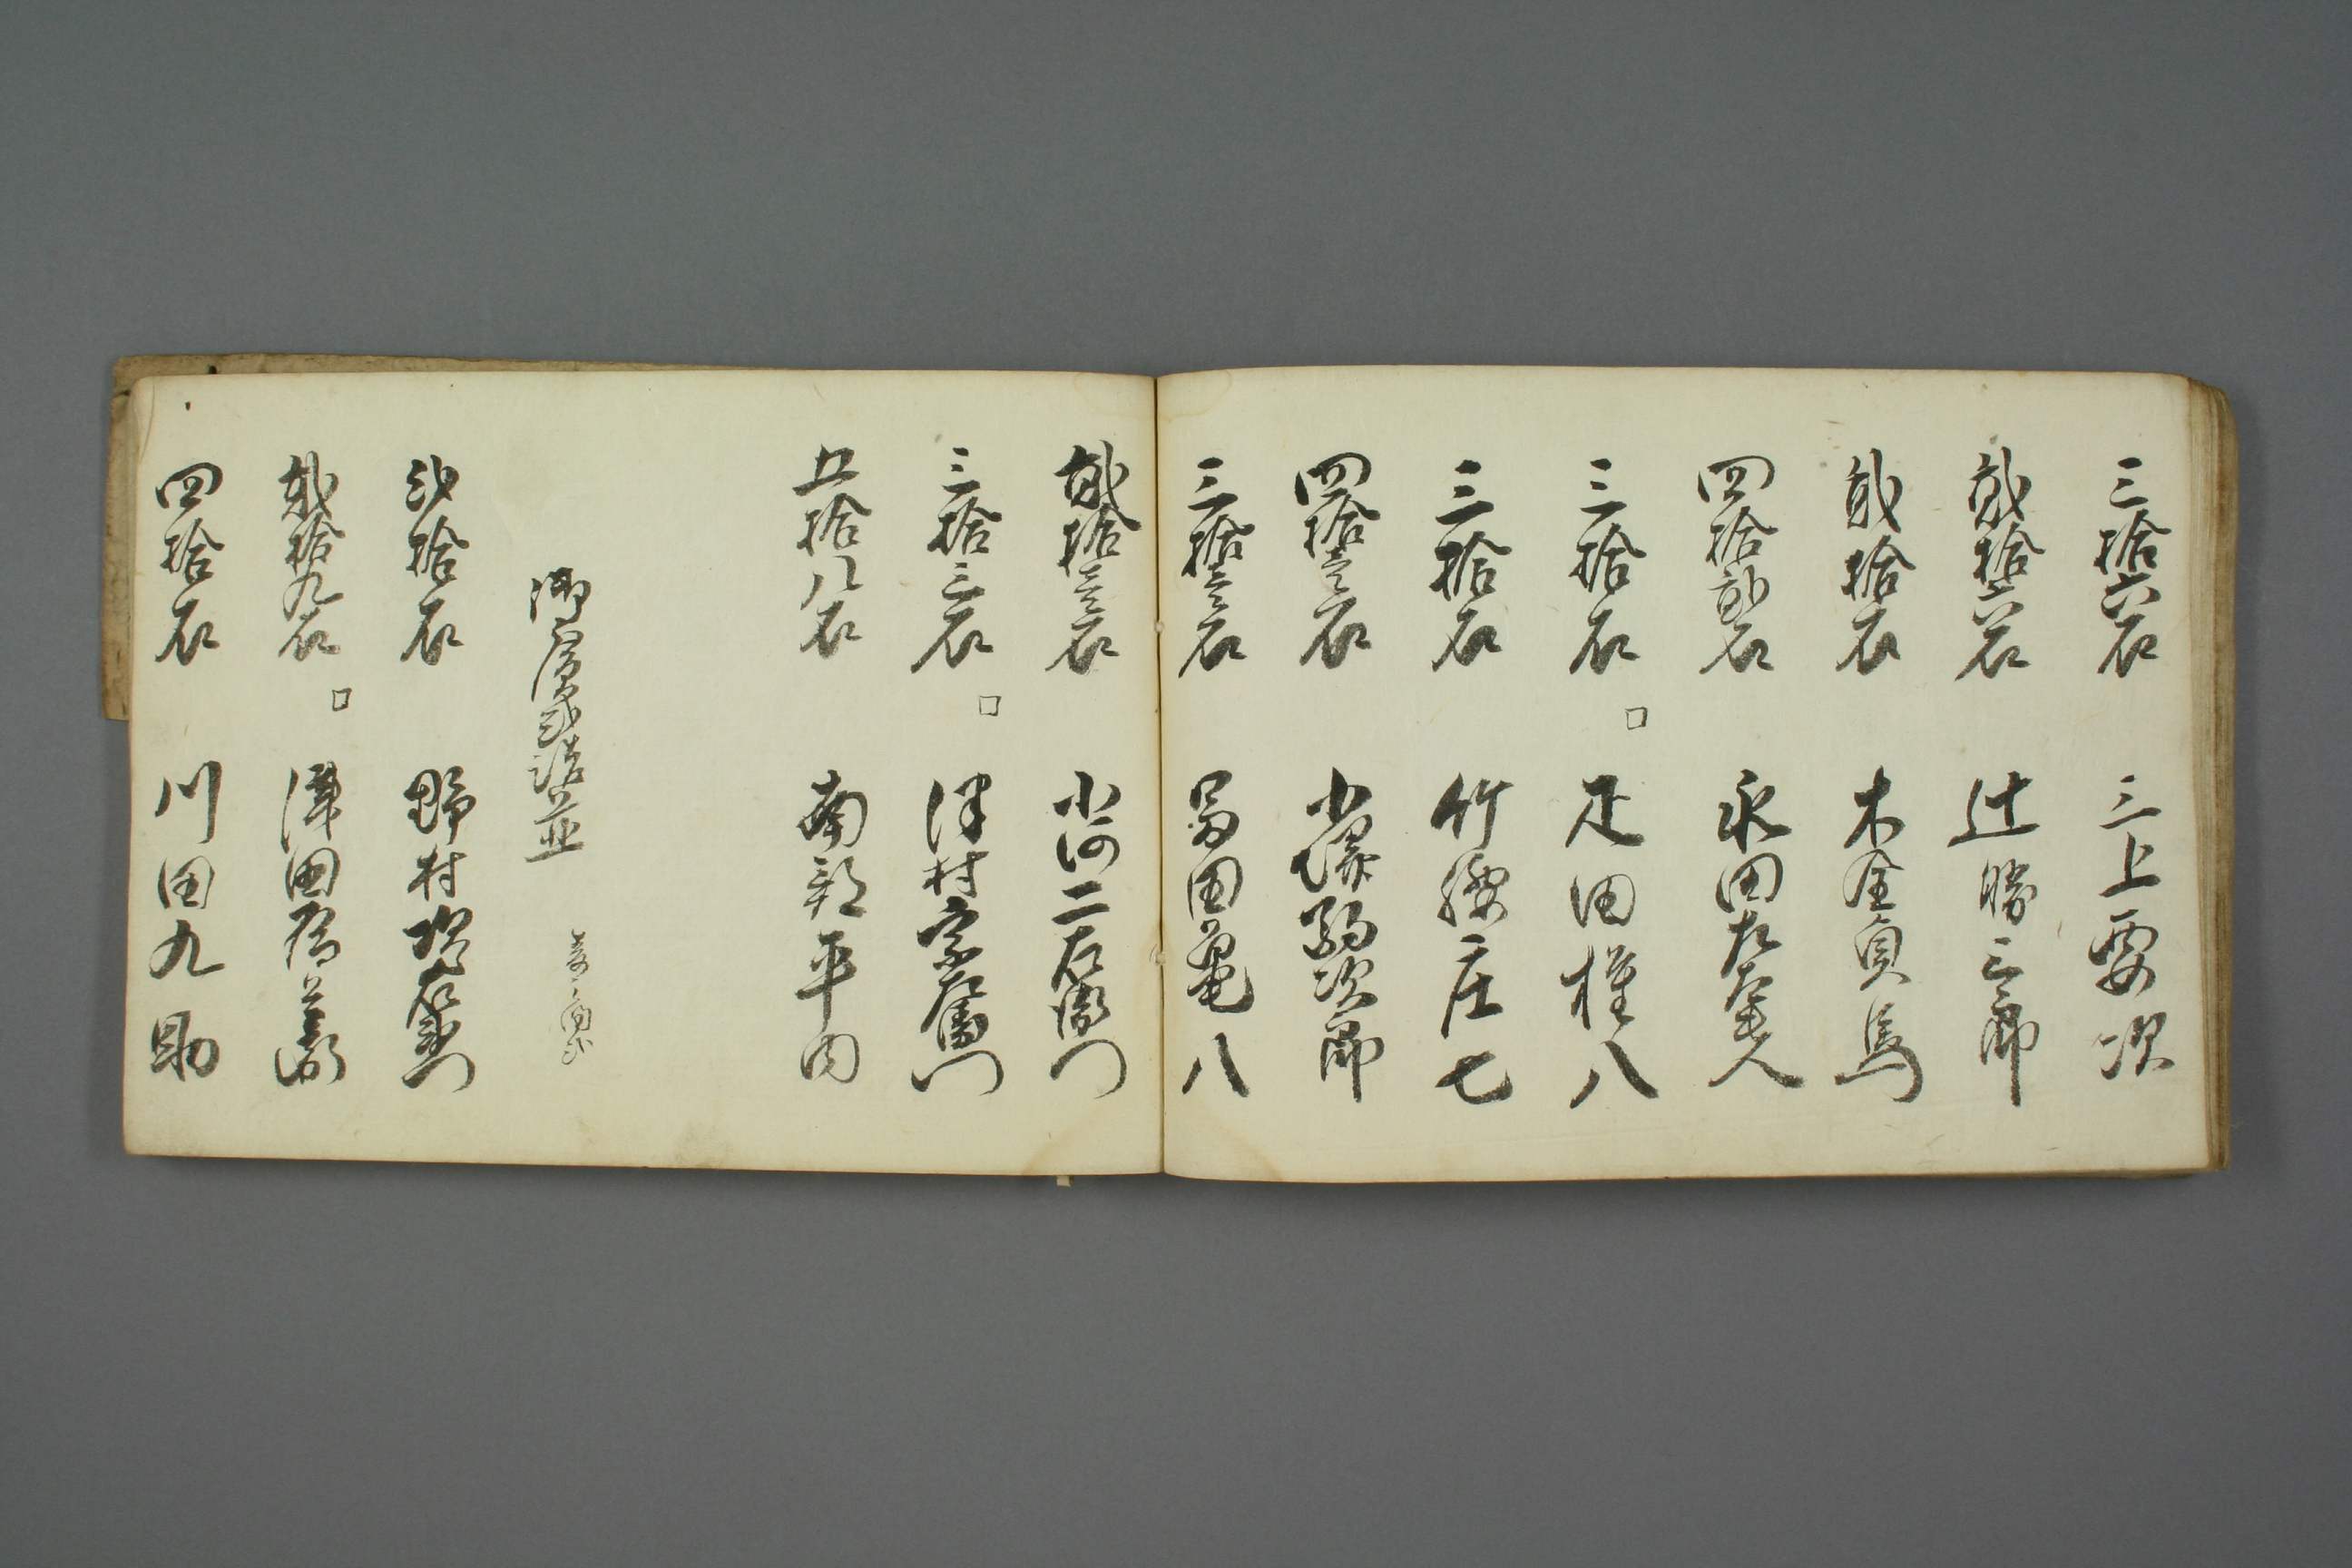 三拾六石 三上要次
貳拾六石 辻勝三郎
貳拾石 木全貞馬
四拾弐石 永田左太夫
三拾石 疋田権八
三拾石 竹腰庄七
四拾壱石 小塚弥次郎
三拾壱石 冨田亀八
貳拾壱石 小河二右衛門
三拾三石 津村宗右衛門
五拾八石 南部平内
御広式詰並
弐拾石 野村次右衛門
貳拾九石 津田
四拾石 川田九助